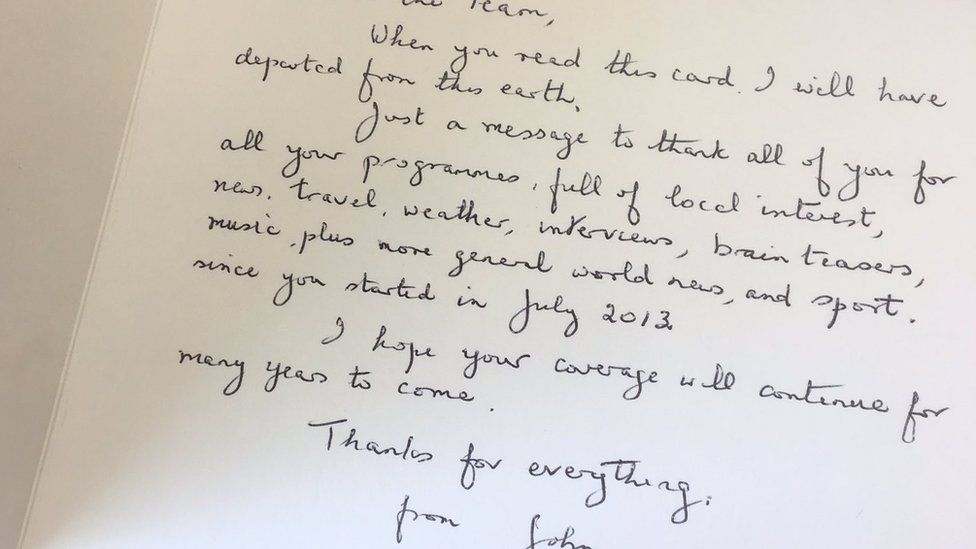 the Team,
When you read this card. I will have
departed from this earth,
Just a message to thank all of you for
all your programmes, full of local interest,
news, travel, weather, interviews, brain teasers,
music, plus more general world news, and sport.
since you started in July 2013
I hope your coverage will continue for
many years to come.
Thanks for everything.
from John